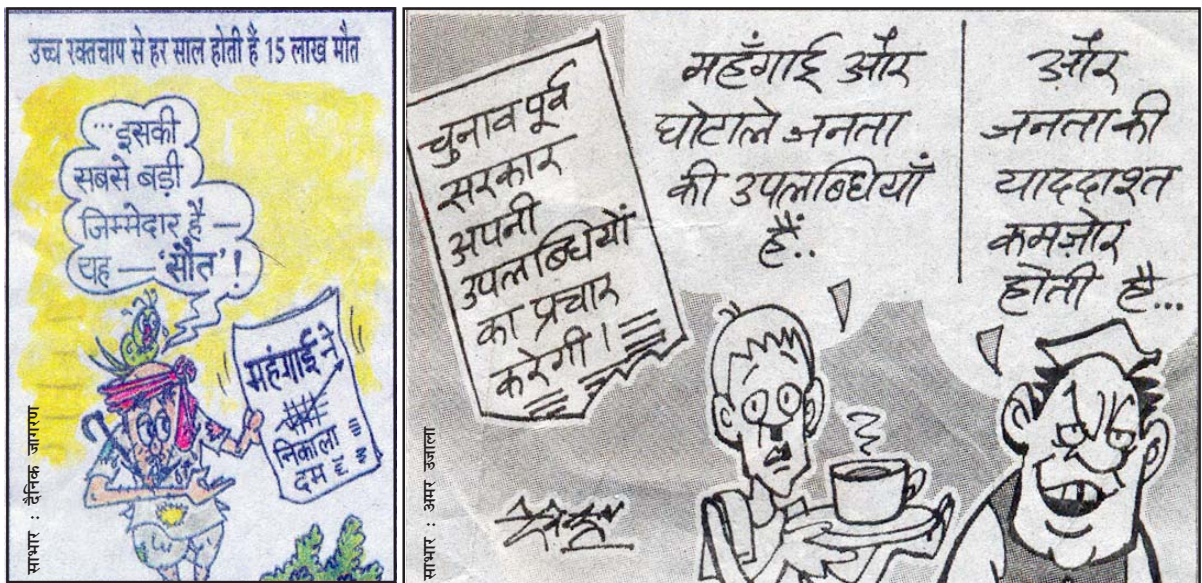 उच्च रक्तचाप से हर साल होती हैं 15 लाख मौत
...इसकी
सबसे बड़ी
जिम्मेदार है –
यह – 'सौत' !
महंगाई ने
निकाला
दम
साभार : दैनिक जागरण
चुनाव पूर्व
सरकार
अपनी
उपलब्धियों
का प्रचार
करेगी !
महँगाई और
घोटाले जनता
की उपलब्धियाँ
हैं..
और
जनता की
याददाश्त
कमज़ोर
होती है...
साभार : अमर उजाला